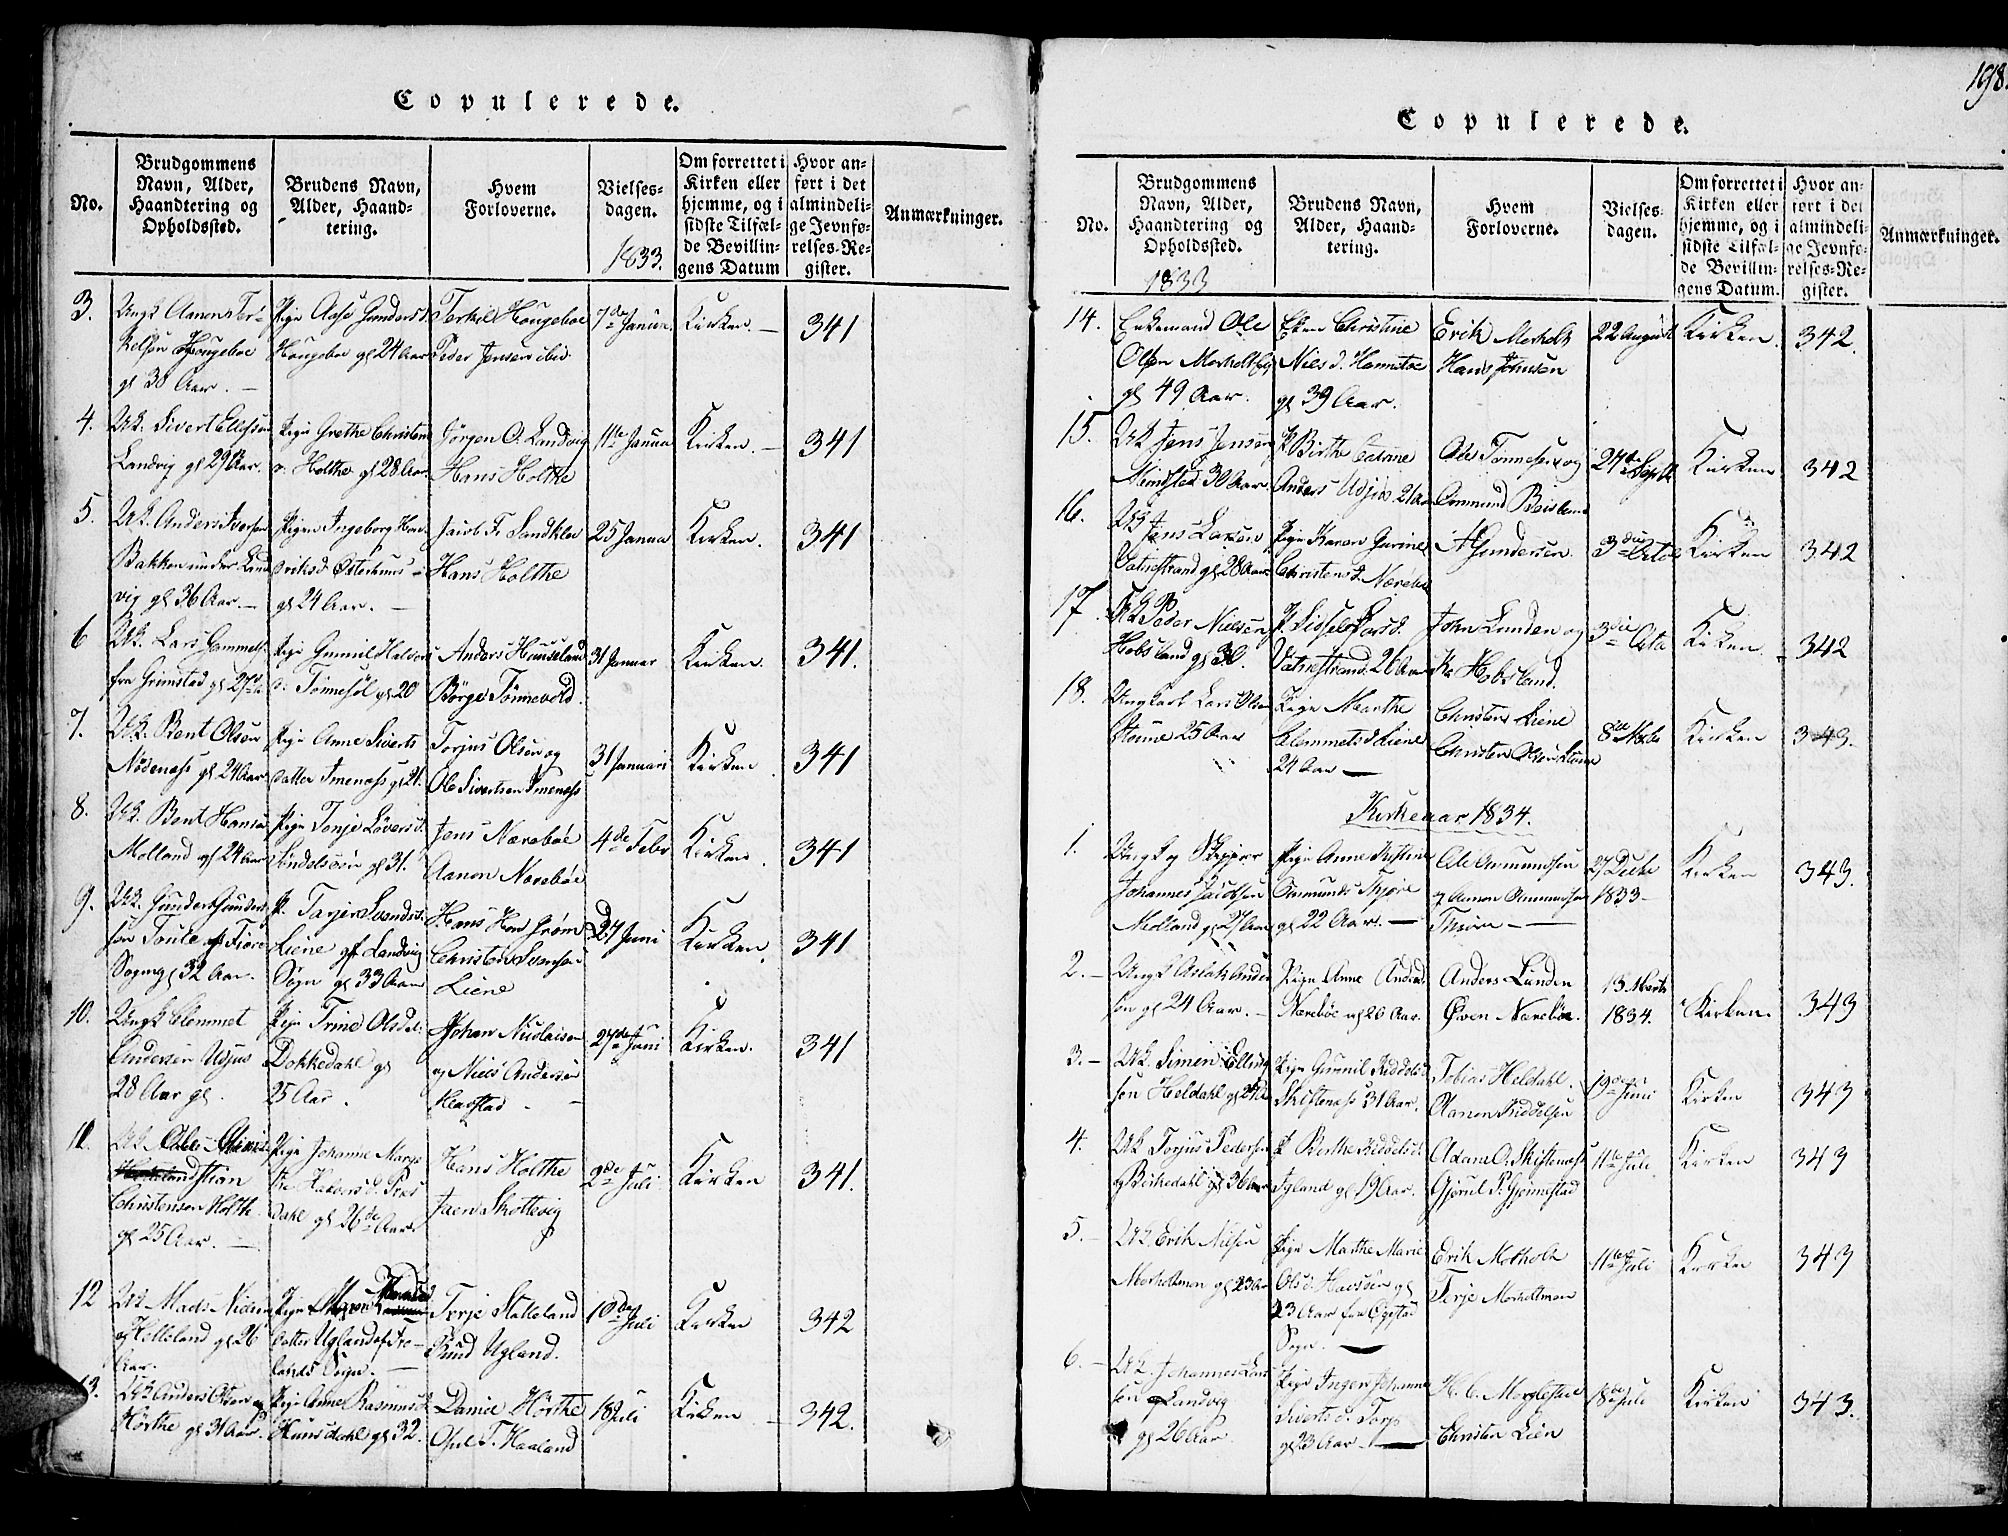 198.
Copulerede.
No.
Brudgommens
Navn, Alder,
Haandtering og
Opholdssted.
Brudens Navn,
Alder, Haand-
tering.
Hvem
Forloverne.
Vielses-
dagen.
1833.
Om forrettet i
Kirken eller
hjemme, og i
sidste Tilfæl-
de Bevillin-
gens Datum
Hvor an-
ført i det
almindeli-
ge Jevnfø-
relses-Re-
gister.
Anmærkninger.
3.
Aanen Ter-
kelsen Hougeboe
gl 30 Aar.
Pige Aase Gunders d.
Hougeboe gl 24 Aar
Terkel Hougeboe
Peder Jensen ibid.
7de Januar
Kirken
341
4.
UK. Sivert Ellefsen
Landvig gl 29 Aar.
Pige Grethe Christen
d. Holthe gl 28 Aar
Jørgen O. Landvig
Hans Holthe
11te Janua
Kirken
341
5.
UK. Anders Iversen
Bakken under Land
vig gl 36 Aar.
Pigen Ingeborg Hen
driksd Østerhuus
gl 24 Aar.
Jacob F. Sandklev
Hans Holthe
25 Janua
Kirken.
341
6
UK. Lars Gammels.
fra Grimstad gl
Pige Gunnil Halvors
d. Tønnesøl gl 20
Anders Hauseland
Børge Tønnevold.
31 Januar
Kirken.
341.
7.
UK. Bent Olsen
Nødenæss gl 24 Aar
Pige Anne Siverts
datter Imenæss gl 21.
Torjus Olsen og
Ole Sivertsen Imenæss
31 Januari
Kirken
341
8.
UK. Bent Hansen
Molland gl 24 Aar
Pige Tonje Løvers d.
gl 31.
Jens Nærebøe
Aanon Nærebøe
4de Febr
Kirken
341
9.
UK. Gunder Gunder
sen Toule af Fiære
Sogn gl 32 Aar.
P. Tarjer Svends d.
Liene af Landvig
Sogn gl 33 Aar
Hans Grøm
Christen Svensen
Liene
27 Juni
Kirken.
341
10.
Ungk Clemmet
Andersen Udjus
28 Aar gl.
Pige Trine Olsdt
Dokkedahl gl
25 Aar.
Johan Nicolaisen
og Niels Andersen
Havstad
27de Juni
Kirken.
341
11.
UK Ole
stian
Christensen Holth.
gl 25 Aar.
Pige Johanne Marge
the Halvors d. Præs
dahl gl 26de Aar
Hans Holthe
Jaen Skottevig
2de Juli
Kirken
341.
12
UK Mads
Helleland gl 26
Aar.
Pige
datter Ugland af
lands Sogn.
Terje Stalleland
Knud Ugland.
10de Juli
Kirken
342
13.
UK Anders Olsen
Hørthe gl 31 Aar.
Pige Anne Rasmus d.
Hunsdahl gl 32.
Daniel Hørthe
Ojul T. Haaland
18 Juli
Kirken
342.
Copulerede.
No.
Brudgommens
Navn, Alder,
Haandtering og
Opholdssted.
1833
Brudens Navn,
Alder, Haand-
tering.
Hvem
Forloverne.
Vielses-
dagen.
Om forrettet i
Kirken eller
hjemme, og i
sidste Tilfæl-
de Bevillin-
gens Datum.
Hvor an-
ført i det
almindeli-
ge Jevnfø-
relses-Re-
gister.
Anmærkninger.
14.
Enkemand Ole
Olsen Morholt
gl 49 Aar.
Enken Christine
Niels d. Hamstøe
gl 39 Aar.
Erik Morholt
Hans Johnsen
22 August
Kirken.
342.
15.
UK Jens Jensen
30 Aar.
P Birthe Catrine
Anders Udjus 21 Aar
Ole Tønnesen og
Omund Beisland
27de Sept
Kirken
342
16.
UK Jens Larsen
Vatnestrand gl 28 Aar
Pige Karen Gurine
Christens d. Nærebø
A Gundersen
3die Octo
Kirken
342
17.
UK Peder Nielsen
Hobsland gl 30.
P. Sidsel Larsd.
Vatnestrand. 26 Aar
John Lunden og
K. Hobsland.
3die Octo
Kirken.
342
18.
Ungkarl Lars Olsen
25 Aar
Pige Marthe
Clemmets d Liene
24 Aar
Christen Liene
Christen Olsen
8de Novbr
Kirken
343.
Kirkeaar 1834.
1.
Ungk og Skipper
Johannes Jacobsen
Molland gl 27 Aar
Pige Anne Kristine
Omunds Fjære
gl 22 Aar.
Ole Omundsen
og Aanon Ommunsen
Fjære
27 Decbr
1833
Kirken
343.
2.
Ungk Aslak Ander
sen gl 24 Aar.
Pige Anne Andersd
Nærebøe gl 20 Aar.
Anders Lunden
Øven Nærebøe.
13 Marts
1834.
Kirken.
343
3.
UK. Simen Elling
sen Heldahl gl
Pige Gunnil Kiddels d
Skiftenæss 31 Aar.
Tobias Heldahl.
Aanon Kiddelsen
19de Juni
Kirken
343
4.
UK Torjus Pedersen
Birkedahl gl 36 Aar
P Berthe Kiddels d.
Igland gl 19 Aar.
Adam O. Skiftenæss
Gjerul P. Gjømestad
11te Juli.
Kirken
343
5.
UK. Erik Nilsen
Morholtmon gl 23 Aar
Pige Marthe Marie
Olsd. gl
23 Aar fra
Sogn.
Erik Morholt
Terje Morholtmon
11te Juli
Kirken
343
6.
UK. Johannes Lars
sen Landvig
gl 26 Aar.
Pige Inger Johanne
Siverts d. Torp
gl 23 Aar.
H. C. Moglestue
Christen Lien
18de Juli
Kirken
343.